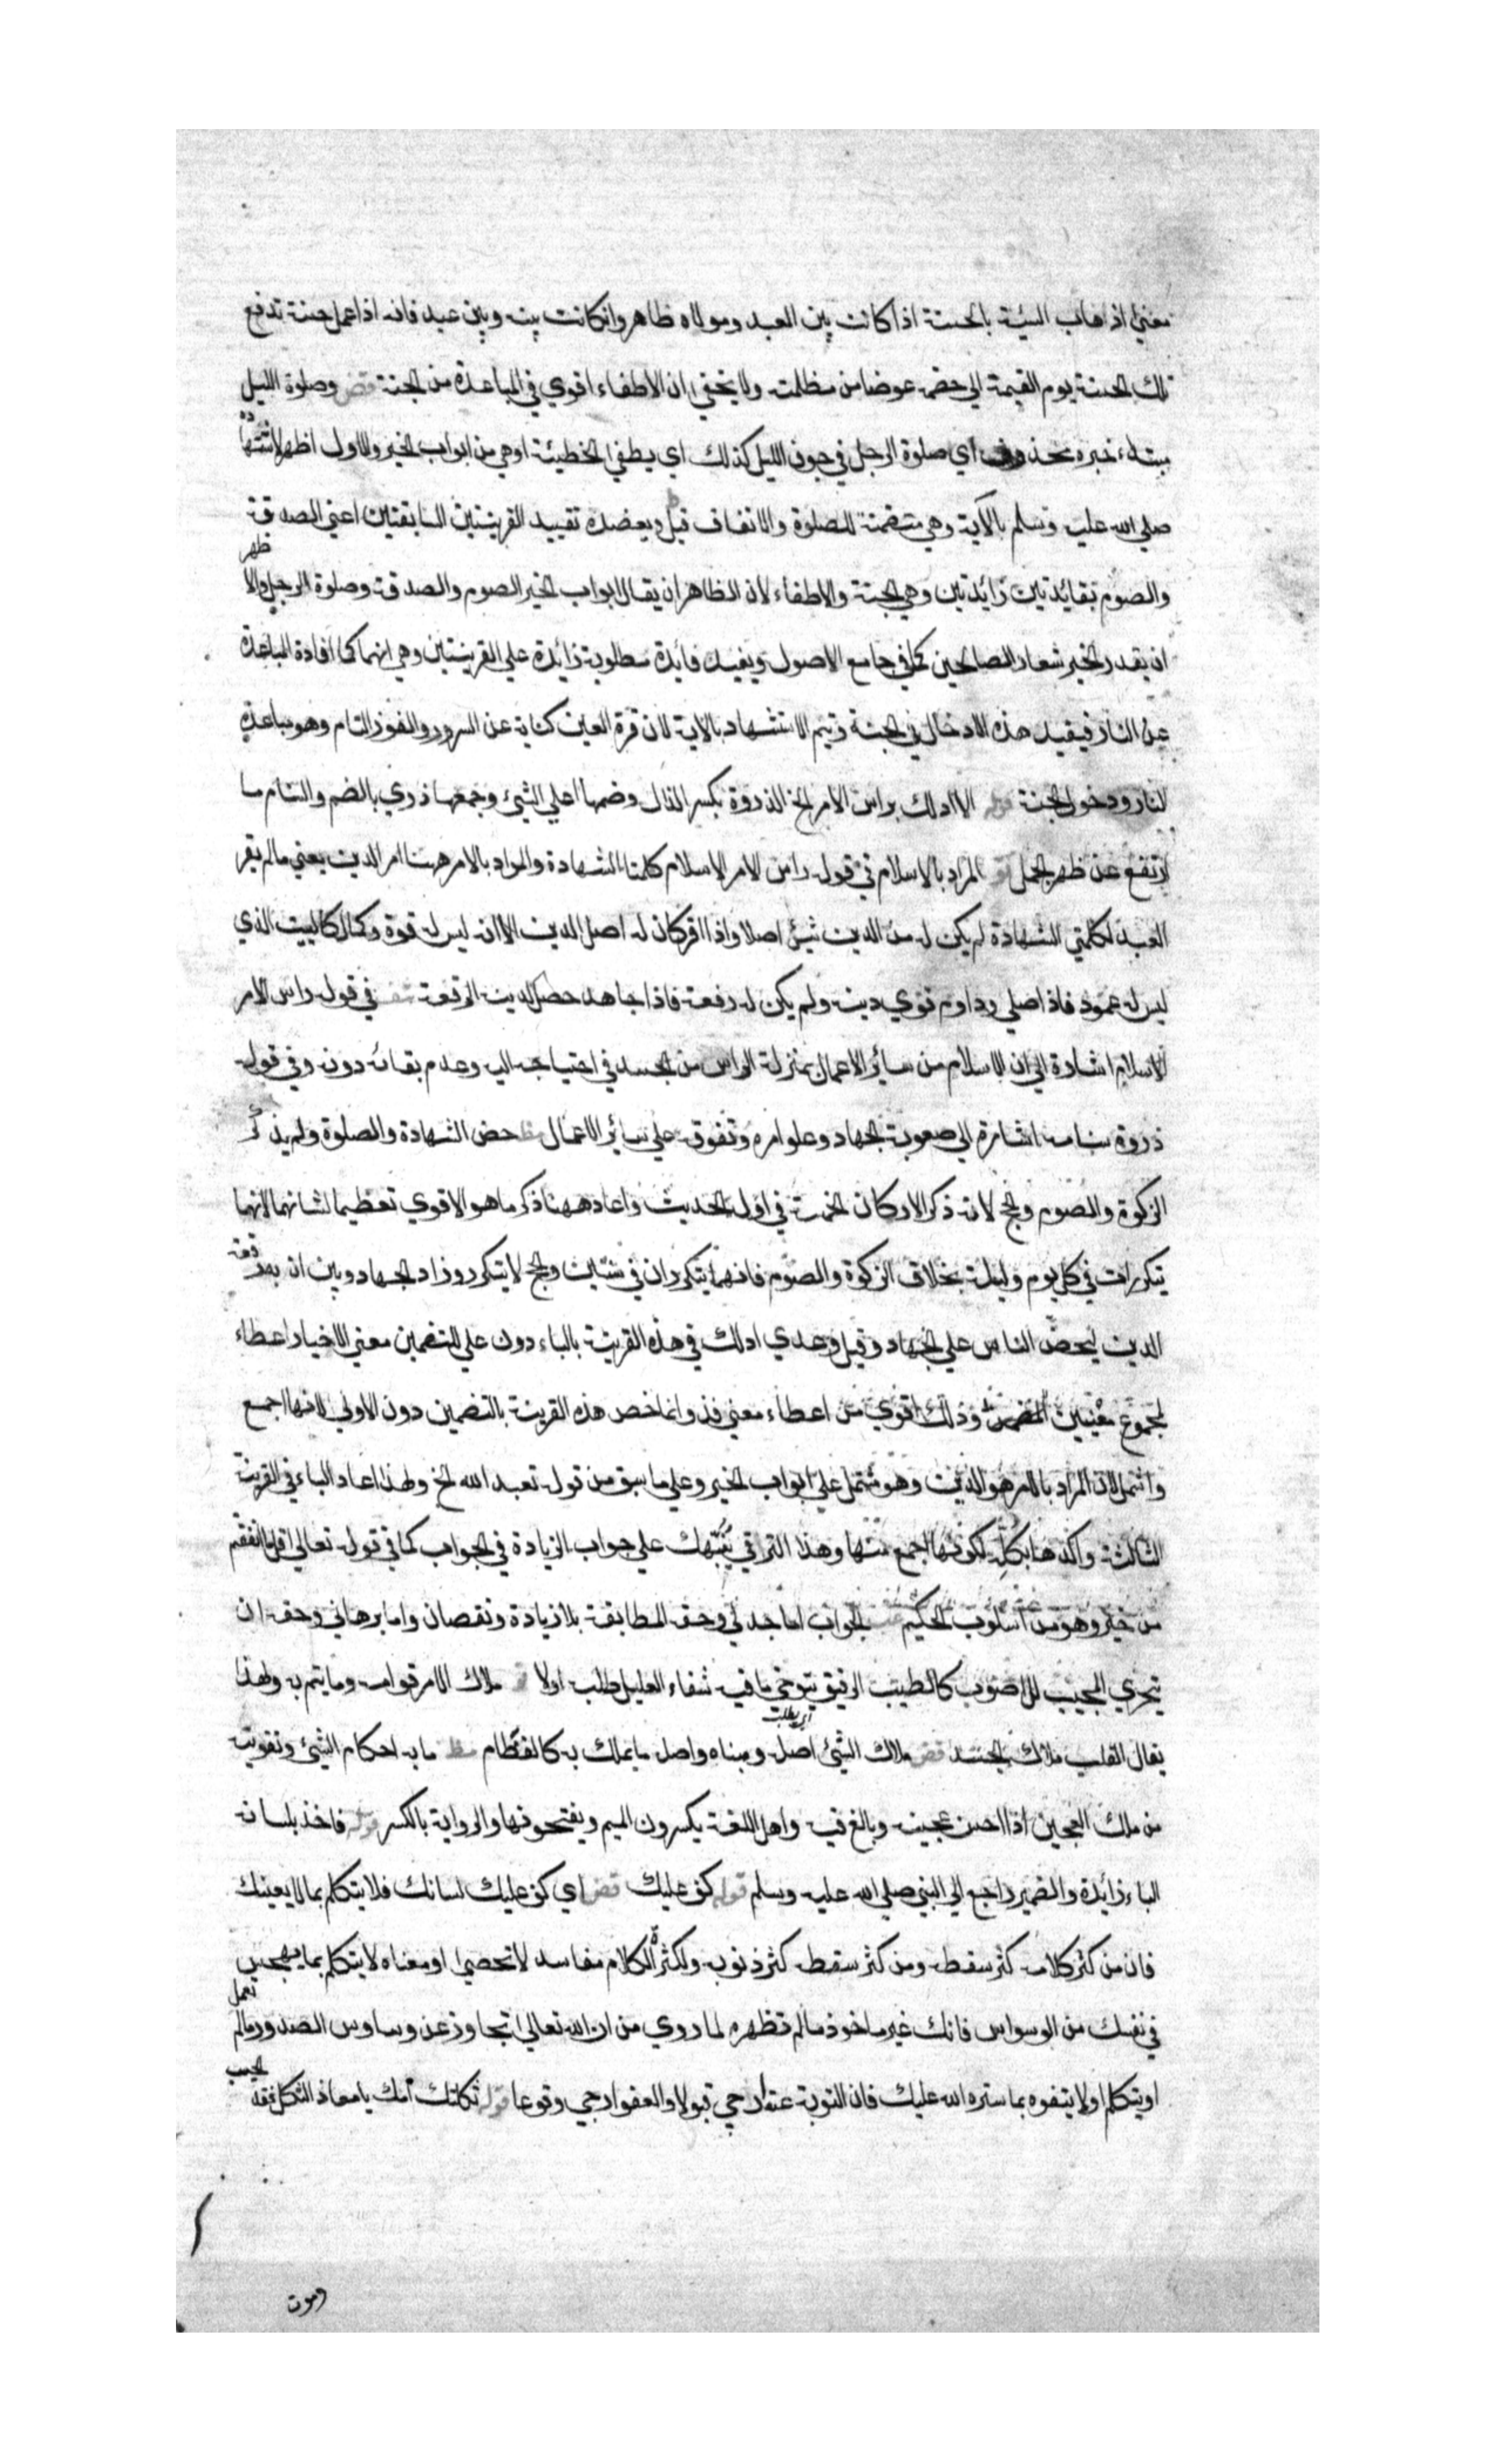 معني اذهاب السيئة بالحسنة اذا كانت بين العبد ومولاه ظاهر وان كانت بينه وبين عبد فانه اذا عمل حسنة تدفع
تلك الحسنة يوم القيمة الي خصمه عوضا من مظلمته ولا يخفي ان الاطفاء اقوي في المباعدة من الجنة قض وصلوة الليل
مبتداء خبره محذوف اي صلوة الرجل في جوف الليل كذلك اي يطفي الخطيئة او هي من ابواب الخير والاول اظهر لاستشهاده
صلي الله عليه وسلم بالاية وهي متضمنة للصلوة والانفاق قيل ويعضده تقييد القرينتين السابقتين اعني الصدقة
والصوم بفائدتين زائدتين وهي الجنة والاطفاء لان الظاهر ان يقال ابواب الخير الصوم والصدقة وصلوة الرجل والاظهر
ان يقدر الخبر شعار الصالحين كما في جامع الاصول ويفيد فائدة مطلوبة زائدة علي القرينتين وهي انهما كما افادة المباعدة
عن النار فيفيد هذه الادخال في الجنة ويتم الاستشهاد بالاية لان قرة العين كناية عن السرور والفوز التام وهو مباعدة
النار ودخول الجنة قوله الا ادلك براس الامر الخ الذروة بكسر الذال وضمها اعلي الشيئ وجمعها ذري بالضم والسنام ما
ارتفع عن ظهر الجمل تو المراد بالاسلام في قوله راس الامر الاسلام كلمتا الشهادة والمراد بالامر ههنا امر الدين يعني مالم يقر
العبد بكلمتي الشهادة لم يكن له من الدين شيئ اصلا واذا اقر كان له اصل الدين الا انه ليس له قوة وكمال كالبيت الذي
ليس له عمود فاذا صلي وداوم قوي دينه ولم يكن له رفعة فاذا جاهد حصل لدينه الرفعة شف في قوله راس الامر
الاسلام اشارة الي ان الاسلام من سائر الاعمال بمنزلة الراس من الجسد في احتياجه اليه وعدم بقائه دونه وفي قوله
ذروة سنامه اشارة الي صعوبة الجهاد وعلو امره وتفوقه علي سائر الاعمال مظ خص الشهادة والصلوة ولم يذكر
الزكوة والصوم والحج لانه ذكر الاركان الخمسة في اول الحديث واعاد ههنا ذكر ما هو الاقوي تعظيما لشانهما لانهما
يتكررات في كل يوم وليلة بخلاف الزكوة والصوم فانهما يتكرران في سنتين والحج لا يتكرر وزاد الجهاد وبين ان به رفعة
الدين ليحض الناس علي الجهاد وقيل وعدي ادلك في هذه القرينة بالباء دون علي لتضمين معني الاخبار اعطاء
لمجموع معنيين وذلك اقوي من اعطاء معني فذ وانما خص هذه القرينة بالتضمين دون الاولي لانها اجمع
واشمل لان المراد بالامر هو الدين وهو مشتمل علي ابواب الخير وعلي ما سبق من قوله تعبد الله الخ ولهذا اعاد الباء في القرينة
الثالثة واكدها بكله لكونها اجمع منها وهذا الترقي ينبهك علي جواب الزيادة في الجواب كما في قوله تعالي قل ما انفقتم
من خير وهو من اسلوب الحكيم الجواب اما جدلي وحقه المطابقة بلا زيادة ونقصان واما برهاني وحقه ان
يتحري المجيب للاصوب كالطبيب الرفيق يتوخي ما فيه شفاء العليل طلبه اولا ملاك الامر قوامه وما يتم به ولهذا
اي يطلب
يقال القلب ملاك الجسد قض ملاك الشيئ اصله ومبناه واصل ما يملك به كالنظام مظ ما به احكام الشيئ وتقويته
من ملك العجين اذا احسن عجينه وبالغ فيه واهل اللغة يكسرون الميم ويفتحونها والرواية بالكسر قوله فاخذ بلسانه
الباء زائدة والضمير راجع الي النبي صلي الله عليه وسلم قوله كف عليك قض اي كف عليك لسانك فلا يتكلم بما لا يعنيك
فان من كثر كلامه كثر سقطه ومن كثر سقطه كثر ذنوبه ولكثرة الكلام مفاسد لا تحصي او معناه لا يتكلم بما يهجس
في نفسك من الوسواس فانك غير ماخوذ مالم تظهره لما روي من ان الله تعالي تجاوز عن وساوس الصدور مالم تعمل
او يتكلم او لا يتفوه بما ستره الله عليك فان التوبة عنه ارجي قبولا والعفو ارجي وقوعا قوله ثكلتك امك يا معاذ الثكل فقد الحبيب
وموت